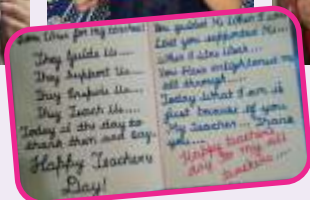 for my teachers!
They Guide Us....
They Support Us....
They Prepare Us....
They Teach Us....
Today is the day to
thank them and say.
Happy Teachers
Day!
You guided Me When I
Lost you supported Me...
When I Was Weak...
You Have enlightened me
all through.....
Today what I am is
just because of you
My Teacher... Thank
you....
Happy teachers
day to my all
teachers....